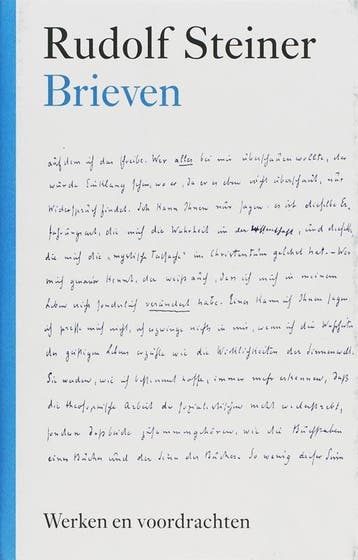 Rudolf Steiner
Brieven
auf dem ich das schreibe. Wer alles bei mir überschauen wollte, der
würde Einklang sehen, wo er, da er es eben nicht überschaut, nur
Widerspruch findet. Ich kann Ihnen nur sagen: es ist dieselbe Er-
fahrungsart, die mich die Wahrheit in der Wissenschaft, und dieselbe,
die mich die „mystische Tatsache" im Christentum gelehrt hat. – Wer
mich genauer kennt, der weiß auch, dass ich mich in meinem
Leben nicht sonderlich verändert habe. Eines kann ich Ihnen sagen
ich presse mich nicht, ich erzwinge nichts in mir, wenn ich die Wahrheiten
des geistigen Lebens erzähle wie die Wirklichkeiten der Sinnenwelt.
Sie werden, wie ich bestimmt hoffe, immer mehr erkennen, dass
die theosophische Arbeit der sozialistischen nicht widerstrebt,
sondern dass beide zusammengehören, wie die Buchstaben
eines Buches und der Sinn des Buches. So wenig dieser Sinn
Werken en voordrachten